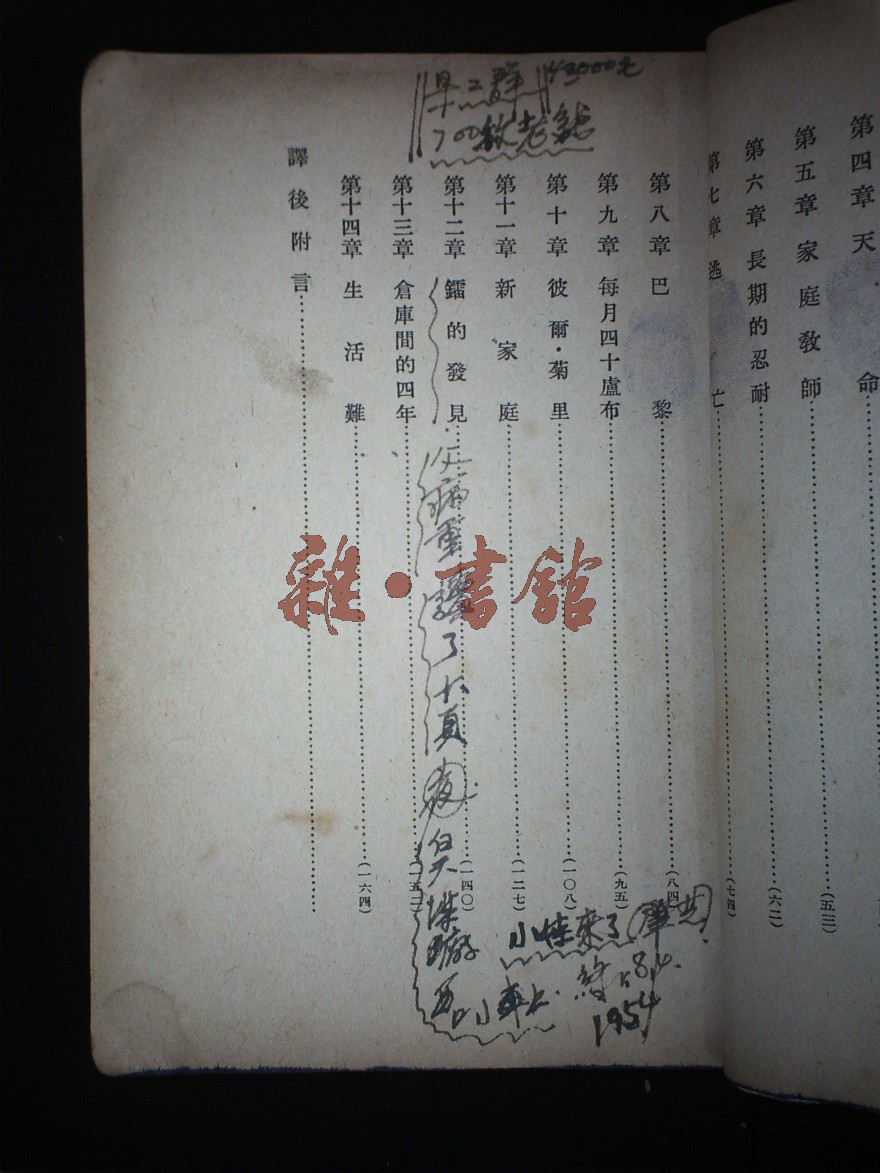 第四章 天 命
第五章 家庭教師 (五三)
第六章 長期的忍耐 (六二)
第七章 逃 亡 (七四)
第八章 巴 黎 (八四)
第九章 每月四十盧布 (九五)
第十章 彼爾·菊里 (一〇八)
第十一章 新家庭 (一二七)
第十二章 鐳的發見 (一四〇)
第十三章 倉庫間的四年 (一五二)
第十四章 生活難 (一六四)
譯後附言
3000元
700
病重
了十頁
小 來了
1954
雜·書館